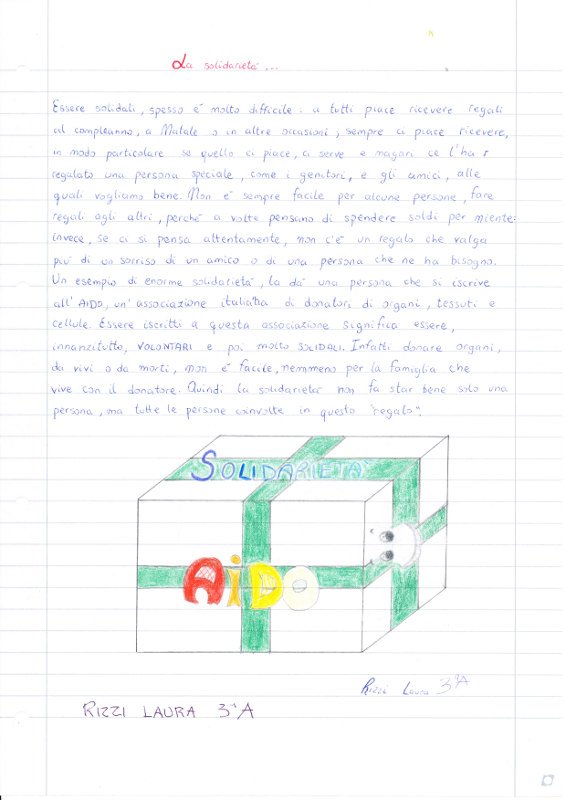 La solidarietà...
Essere solidali, spesso è molto difficile: a tutti piace ricevere regali
al compleanno, a Natale o in altre occasioni, sempre ci piace ricevere,
in modo particolare se quello ci piace, ci serve e magari ce l'ha
regalato una persona speciale, come i genitori, e gli amici, alle
quali vogliamo bene. Non è sempre facile per alcune persone, fare
regali agli altri, perché a volte pensano di spendere soldi per niente:
invece, se ci si pensa attentamente, non c'è un regalo che valga
più di un sorriso di un amico o di una persona che ne ha bisogno.
Un esempio di enorme solidarietà, la dà una persona che si iscrive
all'AIDO, un'associazione italiana di donatori di organi, tessuti e
cellule. Essere iscritti a questa associazione significa essere,
innanzitutto, VOLONTARI e poi molto SOLIDALI. Infatti donare organi,
da vivi o da morti, non è facile, nemmeno per la famiglia che
vive con il donatore. Quindi la solidarietà non fa star bene solo una
persona, ma tutte le persone coinvolte in questo "regalo".
SOLIDARIETÀ
AiDO
Rizzi Laura 3ªA
RIZZI LAURA 3ªA